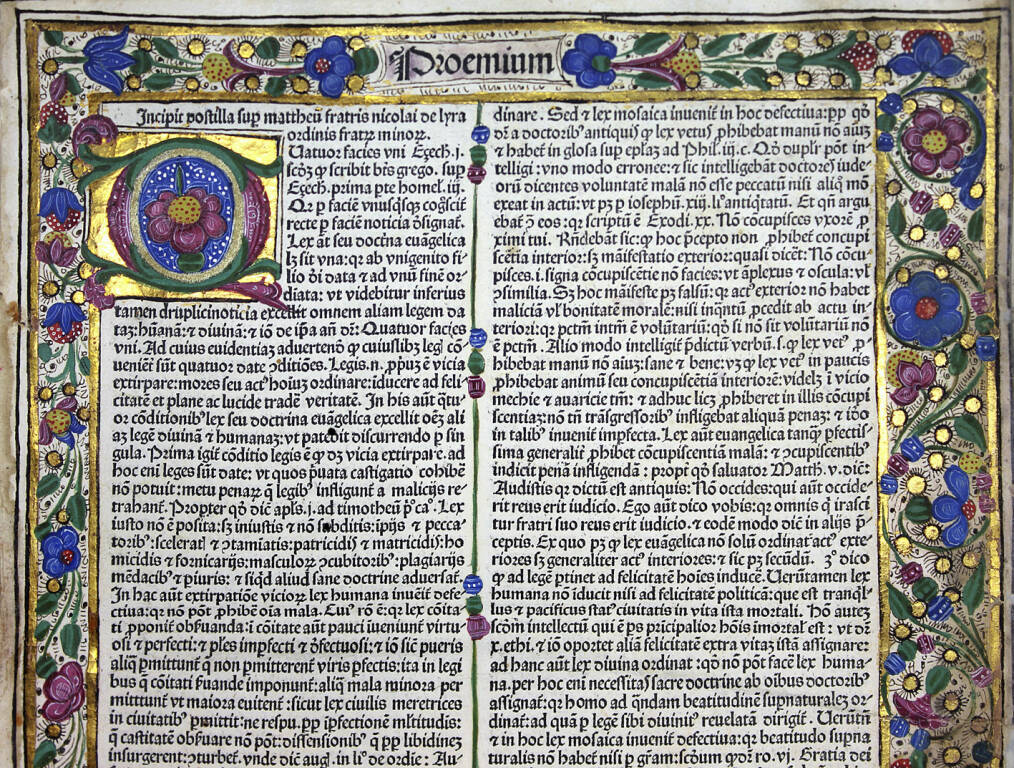 Proemium
Incipit postilla sup̱ mattheū fratris nicolai de lyra
ordinis fratrꝝ minoꝝ.
Uatuor facies vni Ezech. j.
sc̄ꝫ ꝙ scribit bt̄s grego. sup̱
Ezech. prima ꝑte homel. iij.
Qꝛ ꝑ faciē vniuſq̄ſqꝫ cog̃ſcit̄
recte ꝑ faciē noticia ꝺ̄signat̄.
Lex āt seu doctrina euāgelica
lꝫ sit vna: qꝛ ab vnigenito fi-
lio ꝺ̄i data ⁊ ad vnū finē oꝛ-
diata: vt videbitur inferius
tamen ꝺ̄ruplici noticia excellit omnem aliam legem da
taꝫ: hūanā: ⁊ diuinā: ⁊ iō de ip̄a an̄ dr̄: Quatuor facies
vni. Ad cuius euidentiaꝫ aduertenō ꝙ cuiuslibꝫ leg̱ cō
ueniēt sūt quatuor date ꝯditiões. Legis. n. ꝓpuꝫ ē vicia
extirpare: mores seu act⁹ hoiuꝫ ordinare: iducere ad feli
citatē et plane ac lucide tradē veritatē. In his aūt q̄tu-
or cōditionib⁹ lex seu doctrina euāgelica excellit oēꝫ ali
aꝫ legē diuinā ⁊ humanaꝫ: vt patebit discurrendo ꝑ sin
gula. Prima igit̄ cōditio legis ē ꝙ dꝫ vicia extirpare. ad
hoc eni leges sūt date: vt quos ꝓuata castigatio cohibē
nō potuit: metu penaꝝ q̄ legib⁹ infligunt̄ a malicijs re-
trahant̄. Propter qō dic̄ apl̄s. j. ad timotheū ṗ̄ca⁹. Lex
iusto nō ē posita: sꝫ iniustis ⁊ nō subditis: ip̄ijs ⁊ pecca-
torib⁹: scelerat̄ ⁊ ꝯtamiatis: patricidis ⁊ matricidis: ho
micidis ⁊ fornicarijs: masculoꝝ ꝯcubitorib⁹: plagiarijs
mēdacib⁹ ⁊ ꝑiuris: ⁊ siqd̄ aliud sane doctrine aduersat̄.
In hac aūt extirpatiōe vicioꝝ lex humana inueit̄ defe-
ctiua: qꝛ nō pōt ꝓhibē oīa mala. Cui⁹ rō ē: qꝛ lex cōita-
ti ꝓponit̄ obſuanda: i cōitate aūt pauci iueniunt̄ virtu-
osi ⁊ perfecti: ⁊ ples imꝑfecti ⁊ ꝺ̄fectuosi: ⁊ iō sic̄ pueris
aliq̄ ꝑmittunt̄ q̄ non ꝑmitterent̄ viris ꝑfectis: ita in legi
bus q̄ cōitati ſuande imponunt̄: aliq̄ mala minora per
mittunt̄ vt maiora euitent̄: sicut lex ciuilis meretrices
in ciuitatib⁹ ꝑmittit: ne respu. ꝓꝑ iꝑfectionē ml̄titudis:
q̄ castitatē obſuare nō pōt: dissensionib⁹ q̄ ꝓꝑ libidinez
insurgerent: ꝯturbet̄. vnde dic̄ aug̱. in li⁰ de ordie: Au-
dinare. Sed ⁊ lex mosaica inuenit̄ in hoc defectiua: ꝓꝑ qō
dr̄ a doctorib⁹ antiquis ꝙ lex vetus ꝓhibebat manū nō aiuꝫ
⁊ habet̄ in glosa sup̱ epl̄aꝫ ad Phil. iij. c. Qō dupl̄r pōt in
telligi: vno modo erronee: ⁊ sic intelligebāt doctores iude
orū dicentes voluntatē malā nō esse peccatū nisi aliq̄ mō
exeat in actū: vt pꝫ ꝑ iosephū. xij. li⁰ antiq̄tatū. Et qn̄ argu
ebat̄ ꝯ eos: qꝛ scriptū ē Exodi. xx. Nō cōcupisces vxorē ꝓ
ximi tui. Rn̄debant sic: ꝙ hoc p̄cepto non ꝓhibet̄ concupi
scētia interior: sꝫ māifestatio exterior: quasi dicēt: Nō cōcu-
pisces. i. signa cōcupiscētie nō facies: vt āplexus ⁊ oscula: vl̄
ꝯsimilia. Sꝫ hoc māifeste pꝫ falsū: qꝛ act⁹ exterior nō habet
maliciā vl̄ bonitatē morale: nisi inq̄ntū ꝓcedit ab actu in
teriori: qꝛ pctm̄ intm̄ ē volūtariū: qō si nō sit volūtariū nō
ē pctm̄. Alio modo intelligit̄ p̄dictū verbū. s. ꝙ lex vet⁹ ꝓ
hibebat manū nō aiuꝫ: sane ⁊ bene: vꝫ ꝙ lex vet⁹ in paucis
ꝓhibebat animū seu concupiscētiā interiorē: videlꝫ i vicio
mechie ⁊ auaricie tm̄: ⁊ adhuc licꝫ ꝓhiberet in illis cōcupi
scentiaꝫ: nō tn̄ trāsgressorib⁹ infligebat aliquā penaꝫ: ⁊ iō
in talib⁹ inuenit̄ imꝑfecta. Lex aūt euangelica tanq̄ꝫ ꝑfectis-
sima generalit̄ ꝓhibet cōcupiscentiā malā: ⁊ ꝯcupiscentib⁹
indicit penā infligendā: propt̄ qō saluator Matth. v. dic̄:
Audistis qꝛ dictū est antiquis: Nō occides: qui aūt occide
rit reus erit iudicio. Ego aūt dico vobis: qꝛ omnis q̄ irasci
tur fratri suo reus erit iudicio. ⁊ eodē modo dic̄ in alijs p̄
ceptis. Ex quo pꝫ ꝙ lex euāgelica nō solū ordinat act⁹ exte-
riores sꝫ generaliter act⁹ interiores: ⁊ sic pꝫ secūdū. 3⁰ dico
ꝙ ad legē ꝑtinet ad felicitatē hoīes inducē. Uerūtamen lex
humana nō iducit nisi ad felicitatē politicā: que est tranq̄l-
lus ⁊ pacificus stat⁹ ciuitatis in vita ista mortali. Hō autēꝫ
scd̄m intellectū qui ē ps pricipalior hōis imortal̄ est: vt dr̄
x. ethi. ⁊ iō oportet aliā felicitatē extra vitaꝫ istā assignare:
ad hanc aūt lex diuina ordinat: qō nō pōt facē lex huma-
na. per hoc eni necessitas sacre doctrine ab oibus doctorib⁹
assignat̄: qꝛ homo ad q̄ndam beatitudinē supnaturaleꝫ or
dinat̄: ad quā ꝑ legē sibi diuinit⁹ reuelatā dirigit̄. Uerūtn̄
⁊ in hoc lex mosaica inuenit̄ defectiua: qꝛ beatitudo supna
turalis nō habet̄ nisi ꝑ gram̄: scd̄m qd̄ ro. vj. Gratia dei